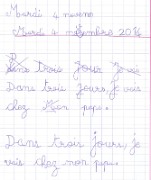 Mardi 4 novem
Mardi 4 novembre 20
Dans trois jours je
Dans trois jours, je vais
chez mon papa.
Dans trois jours, je
vais chez mon papa.